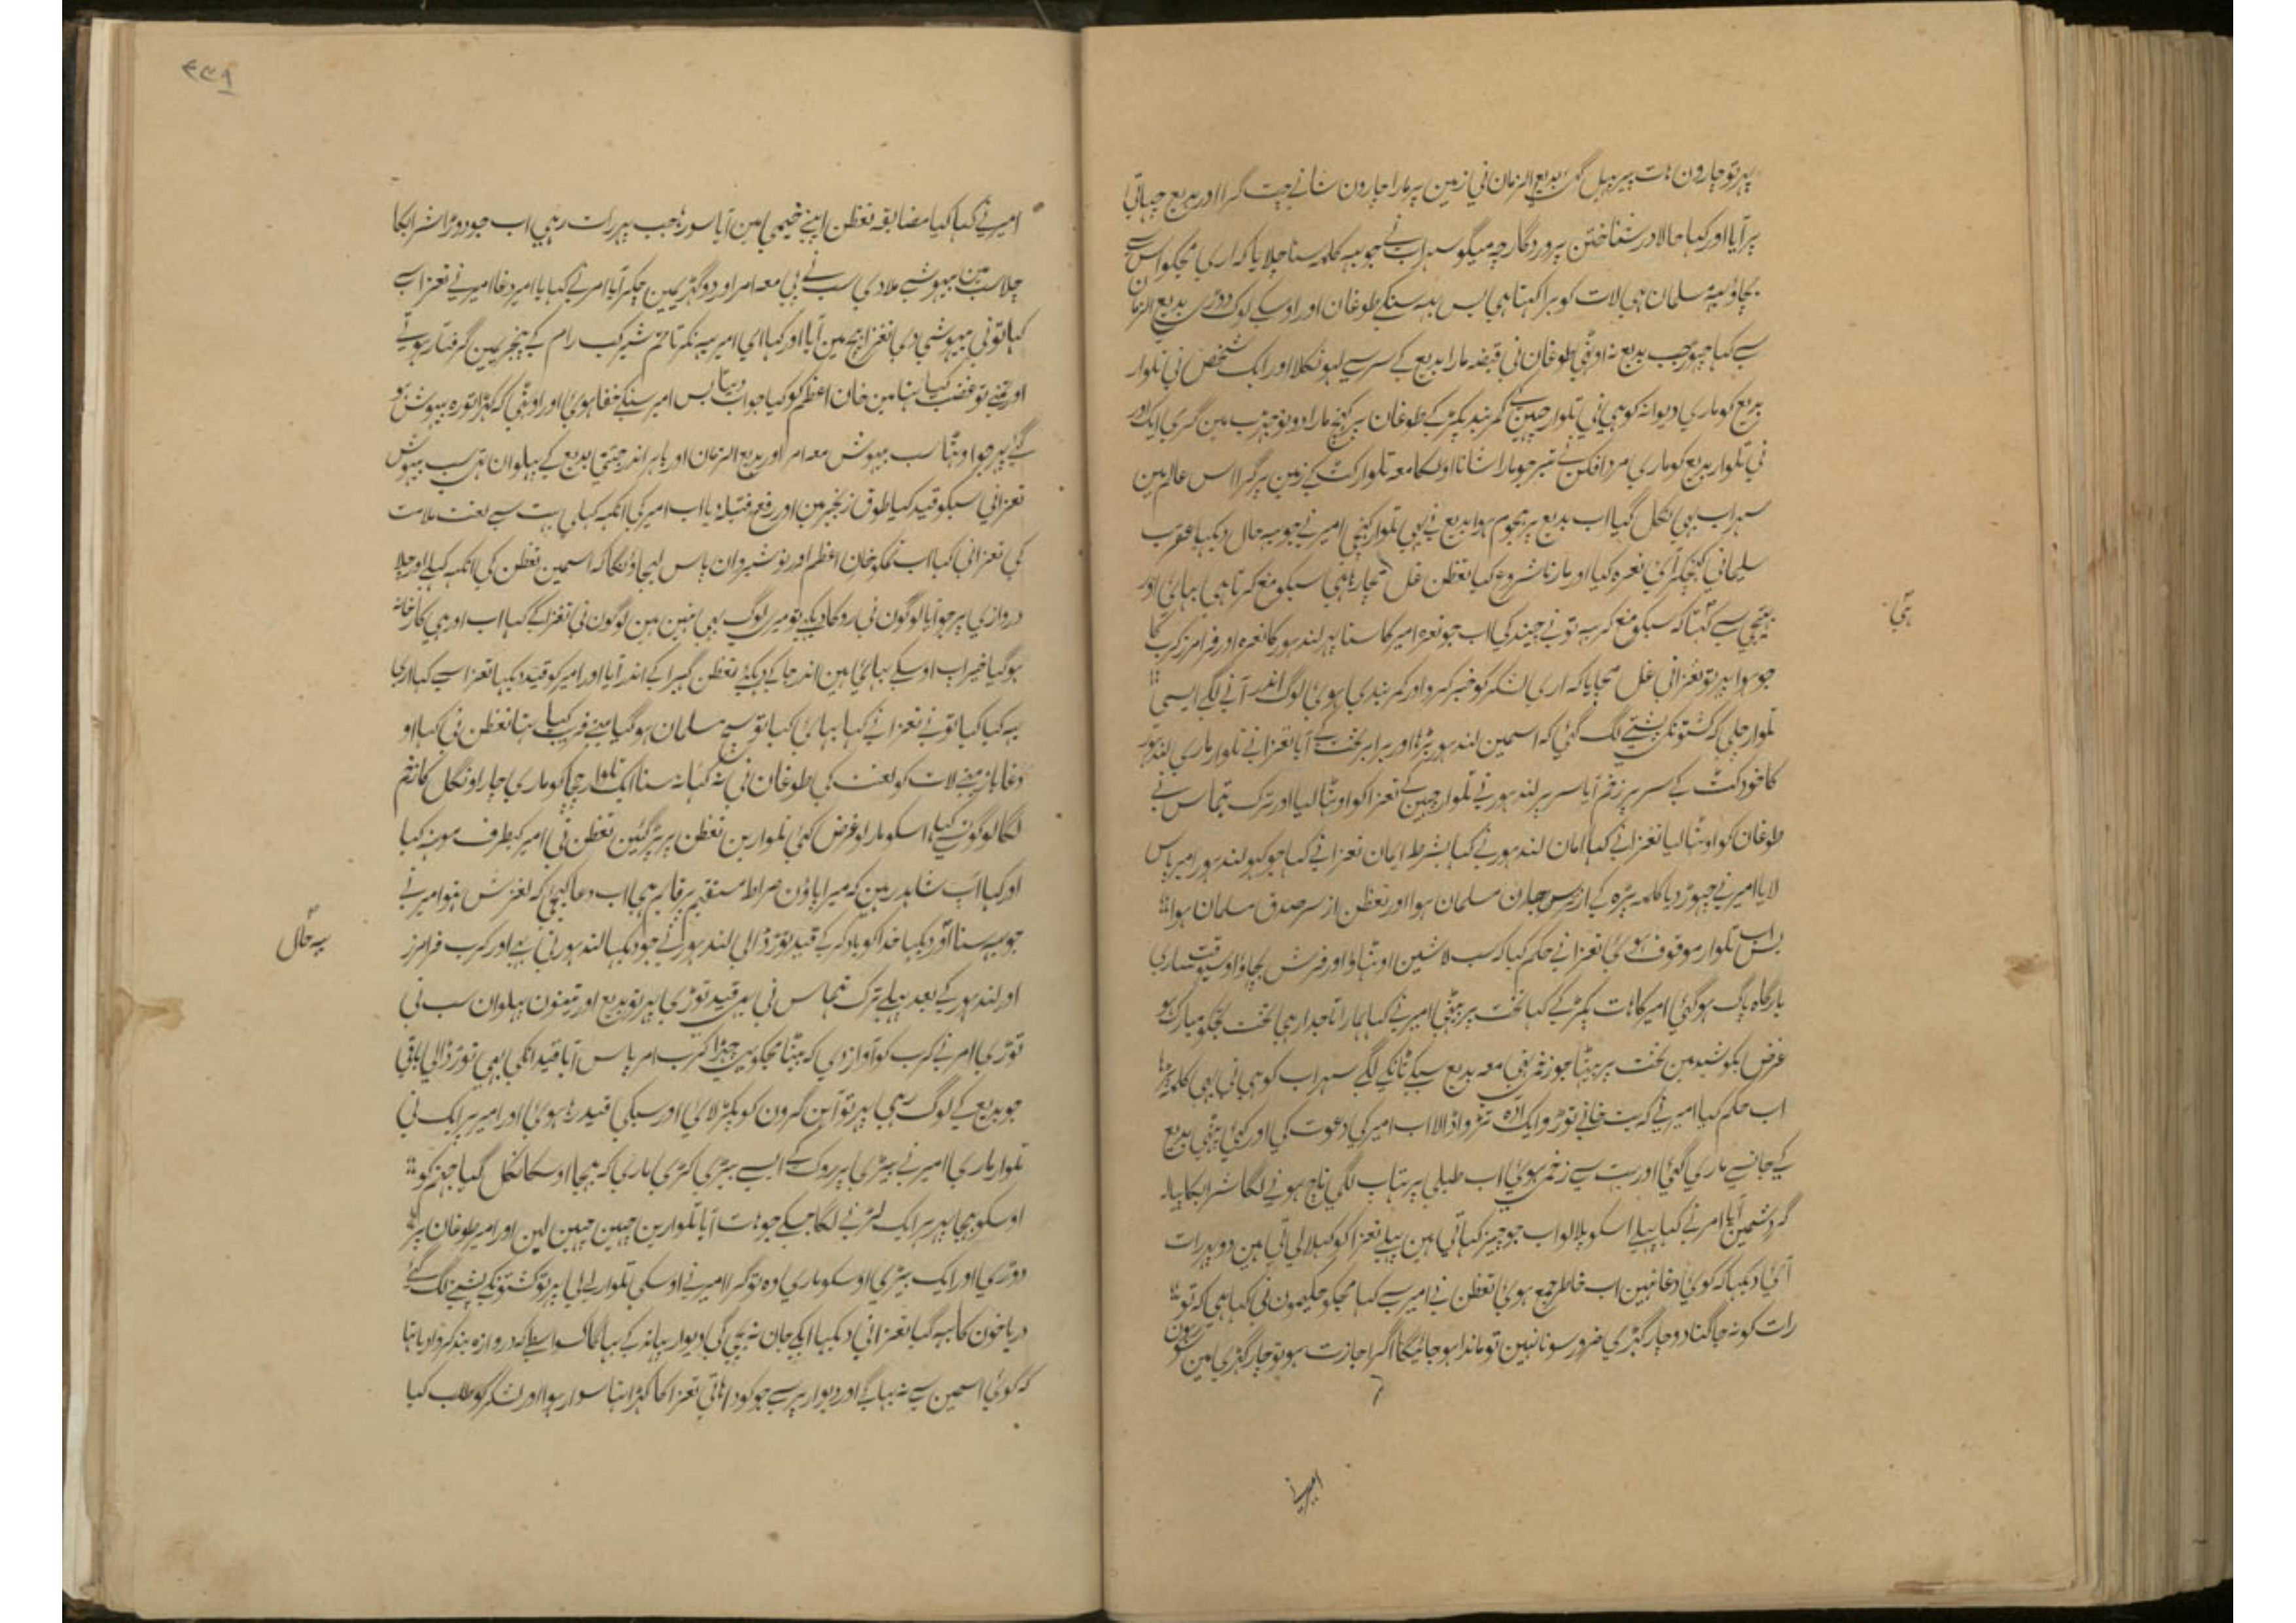 پہر تو چارون ہات پیر ہیل گئ بدیع الزمان نی زمین پر مارا چارون شانے چت گرا اور بدیع چہاتی
پر آیا اور کہا حالا در شناختن پروردگار چہ میگو سہراب نے جو یہہ کلمہ سنا چلایا کہ اری مجکو اس سے
بچاؤ یہہ مسلمان ہی لات کو برا کہتا ہی بس یہہ سنکے طوغان اور اوسکے لوگ دوڑی بدیع الزمان
سے کہا چہوڑ جب بدیع نہ اوٹھی طوغان نی قبضہ مارا بدیع کے سر سے لہو نکلا اور ایک شخص نی تلوار
بدیع کو ماری دیوانہ کوہی نی تلوار چہین کے کمربند پکڑ کے طوغان پر کھنچ مارا دونو جہٹ مین گری ایک اور
نی تلوار بدیع کو ماری مرد افکن نے تبر جو مارا شانا اوسکا معہ تلوار کٹ کے زمین پر گرا اس عالم مین
سہراب بہی نکل گیا اب بدیع پر ہجوم ہوا بدیع نے بہی تلوار کہنچی امیر نے جو یہہ حال دیکہا عقرب
سلیمانی کہنچکر آئی نعرہ کیا اور مارنا شروع کیا نعظن غل مچا رہا ہی سبکو منع کرتا ہی بہائی اور
بھتیجی سے کہتا کہ سبکو منع کر یہ تو نے چیند کی اب جو نعرہ امیر کا سنا پہر لندہور کا نعرہ اور فرامرز کرب کا
جو ہوا پہر تو نعزانی غل مچایا کہ اری لشکر کو خبر کرو اور کمر بندی ہوئی لوگ اندر آنے لگے ایسی
تلوار چلی کہ کشتونکی پشتے لگ گئی کہ اسمین لندہور بڑہا اور برابر تخت کے آیا نعزانے تلوار ماری لندہور
کا خود کٹ کے سر پر زخم آیا سر پر لندہور نے تلوار چہین کے نعزا کو اوٹہا لیا اور ترک تیماس نے
طوغان کو اوٹہا لیا نعزانے کہا امان لندہور نے کہا بشرط ایمان نعزانے کہا جو کہو لندہور امیر پاس
لایا امیر نے چہوڑ دیا کلمہ پڑہ کے از ترس جان مسلمان ہوا اور نعظن از سر صدق مسلمان ہوا
بس اب تلوار موقوف ہوئی نعزانے حکم کیا کہ سب لاشین اوٹہاؤ اور فرش بچہاؤ اوسیوقت ساری
بارگاہ پاک ہو گئی امیر کا ہات پکڑ کے کہا تخت پر بیٹھی امیر نے کہا ہمارا تاجدار ہی تخت تجکو مبارک ہو
غرض بکوشید مین تخت پر بیٹہا جو زخمی تھی معہ بدیع سبکے ٹانکے لگے سہراب کوہی نی بہی کلمہ پڑہا
اب حکم کیا امیر نے کہ بت خانے توڑو ایک آدہ تڑوا ڈالا اب امیر کی دعوت کی اور کئی بیٹھی بدیع
کے جانسے ماری گئی اور بہت سے زخمی ہوئی اب طبلی پر تہاپ لگی ناچ ہونے لگا شراب کا پیالہ
گردشمین آیا امر نے کہا پہلے اسکو پلا لو اب جو چیز کہاتی ہین پہلے نعزا کو کہلا لیتی ہین دوپہر رات
آئی دیکہا کہ کوئی دغا نہین اب خاطر جمع ہوئی نعظن نے امیر سے کہا مجکو حکیمون نی کہا ہی کہ تو
رات کو نہ جاگنا دو چار گہڑی ضرور سونا نہین تو ماندا ہو جائیگا اگر اجازت ہو تو چار گہڑی مین سو رہون
ہی
امیرنے
۴۳۹
امیر نے کہا کیا مضایقہ نعظن اپنے خیمی مین آیا سو رہا جب پہر رات رہی اب جو دوڑا شراب کا
چلا سب مین بیہوشے ملا دی سب نے پی معہ امر اور دو گہڑیمین چکر آیا امر نے کہا یا امیر دغا امیر نے نعزا سے
کہا تو نی بیہوشی دی نعزا ہچ مین آیا اور کہا ای امیر یہہ نکرتا تو ختم شیر کب رام کے پنجریمین گرفتار ہوتے
اور تمنے تو غضب کیا تہا مین خان اعظم کو کیا جواب دیتا بس امیر سنکے خفا ہوئی اور اوٹھی کہ کہڑا تو رہ بیہوش ہو
گئے پہر جو اوٹہا سب بیہوش معہ امر اور بدیع الزمان اور باہر اندر جتنی بدیع کے پہلوان تہی سب بیہوش
نعزانی سبکو قید کیا طوق زنجیر مین اور رفع فتیلہ دیا اب امیر کی آنکہہ کہلی بہت سے لعنت ملامت
کی نعزانی کہا اب تمکو خان اعظم اور نوشیروان پاس لیجاؤنگا کہ اسمین نعظن کی آنکہہ کہلی اور چلا
دروازی پر جو آیا لوگون نی روکا دیکہہ تو میری لوگ بہی نہین مین لوگون نی نعزا کے کہا اب اور ہی کارخانہ
ہو گیا خیر اب اوسکے بہائی ہین اندر جاکے دیکہی نعظن گہبرا کے اندر آیا اور امیر کو قید دیکہا نعزا سے کہا اری
یہہ کیا کیا تو نے نعزانے کہا بہائی کیا تو سچ مسلمان ہو گیا مینے فریب کیا تہا نعظن نی کہا او
دغا باز مینے لات کو لعنت کی طوغان نی نہ کہا نہ سنا ایک تلوار چچا کو ماری چار اونگل کا زخم
لگا لوگون سے کہا اسکو مارو غرض کئی تلوارین نعظن پر پڑ گئین نعظن نی امیر کیطرف مونہہ کیا
اور کہا آپ شاہد رہین کہ میرا پاؤن صراط مستقیم پر قایم ہی اب دعا کیجی کہ لغزش نہو امیر نے
جو یہہ سنا اور دیکہا خدا کو یاد کر کے قید توڑ ڈالی لندہور نے جو دیکہا لندہور نی بہے اور کرب فرامرز
اور لندہور کے بعد پہلے ترک تیماس نی بہی قید توڑی پہر تو بدیع اور تینون پہلوان سب نی
توڑی امر نے کرب کو آواز دی کہ بیٹا مجکو بہی چہڑا کرب امر پاس آیا قید انکی بہی توڑ ڈالی باقی
جو بدیع کے لوگ رہی پہر تو آہن گرون کو پکڑ لائی اور سبکی قید رہا ہوئی اور امیر پر ایک نی
تلوار ماری امیر نے بیڑی پر روک کے ایسے بیڑی کڑی ماری کہ بہیجا اوسکا نکل گیا جہنم کو
اوسکو بہیجا پہر ہر ایک لڑنے لگا جسکے جو ہات آیا تلوارین چہین چہین لین اور امیر طوغان پر
دوڑی اور ایک بیڑی اوسکو ماری وہ تو گرا امیر نے اوسکی تلوار لے لی پہر تو کشتونکی پشتے لگ گئے
دریا خون کا بہہ گیا نعزانی دیکہا ایکی جان نہ بچیگی دیوار پہاند کے بہاگا اسواسطے کہ دروازہ بند کروا دیا تہا
کہ کوئی اسمین سے نہ بہاگے اور دیوار پر سے جو کودا ہاتی نعزا کا کہڑا تہا سوار ہوا اور لشکر کو طلب کیا
یہ حال